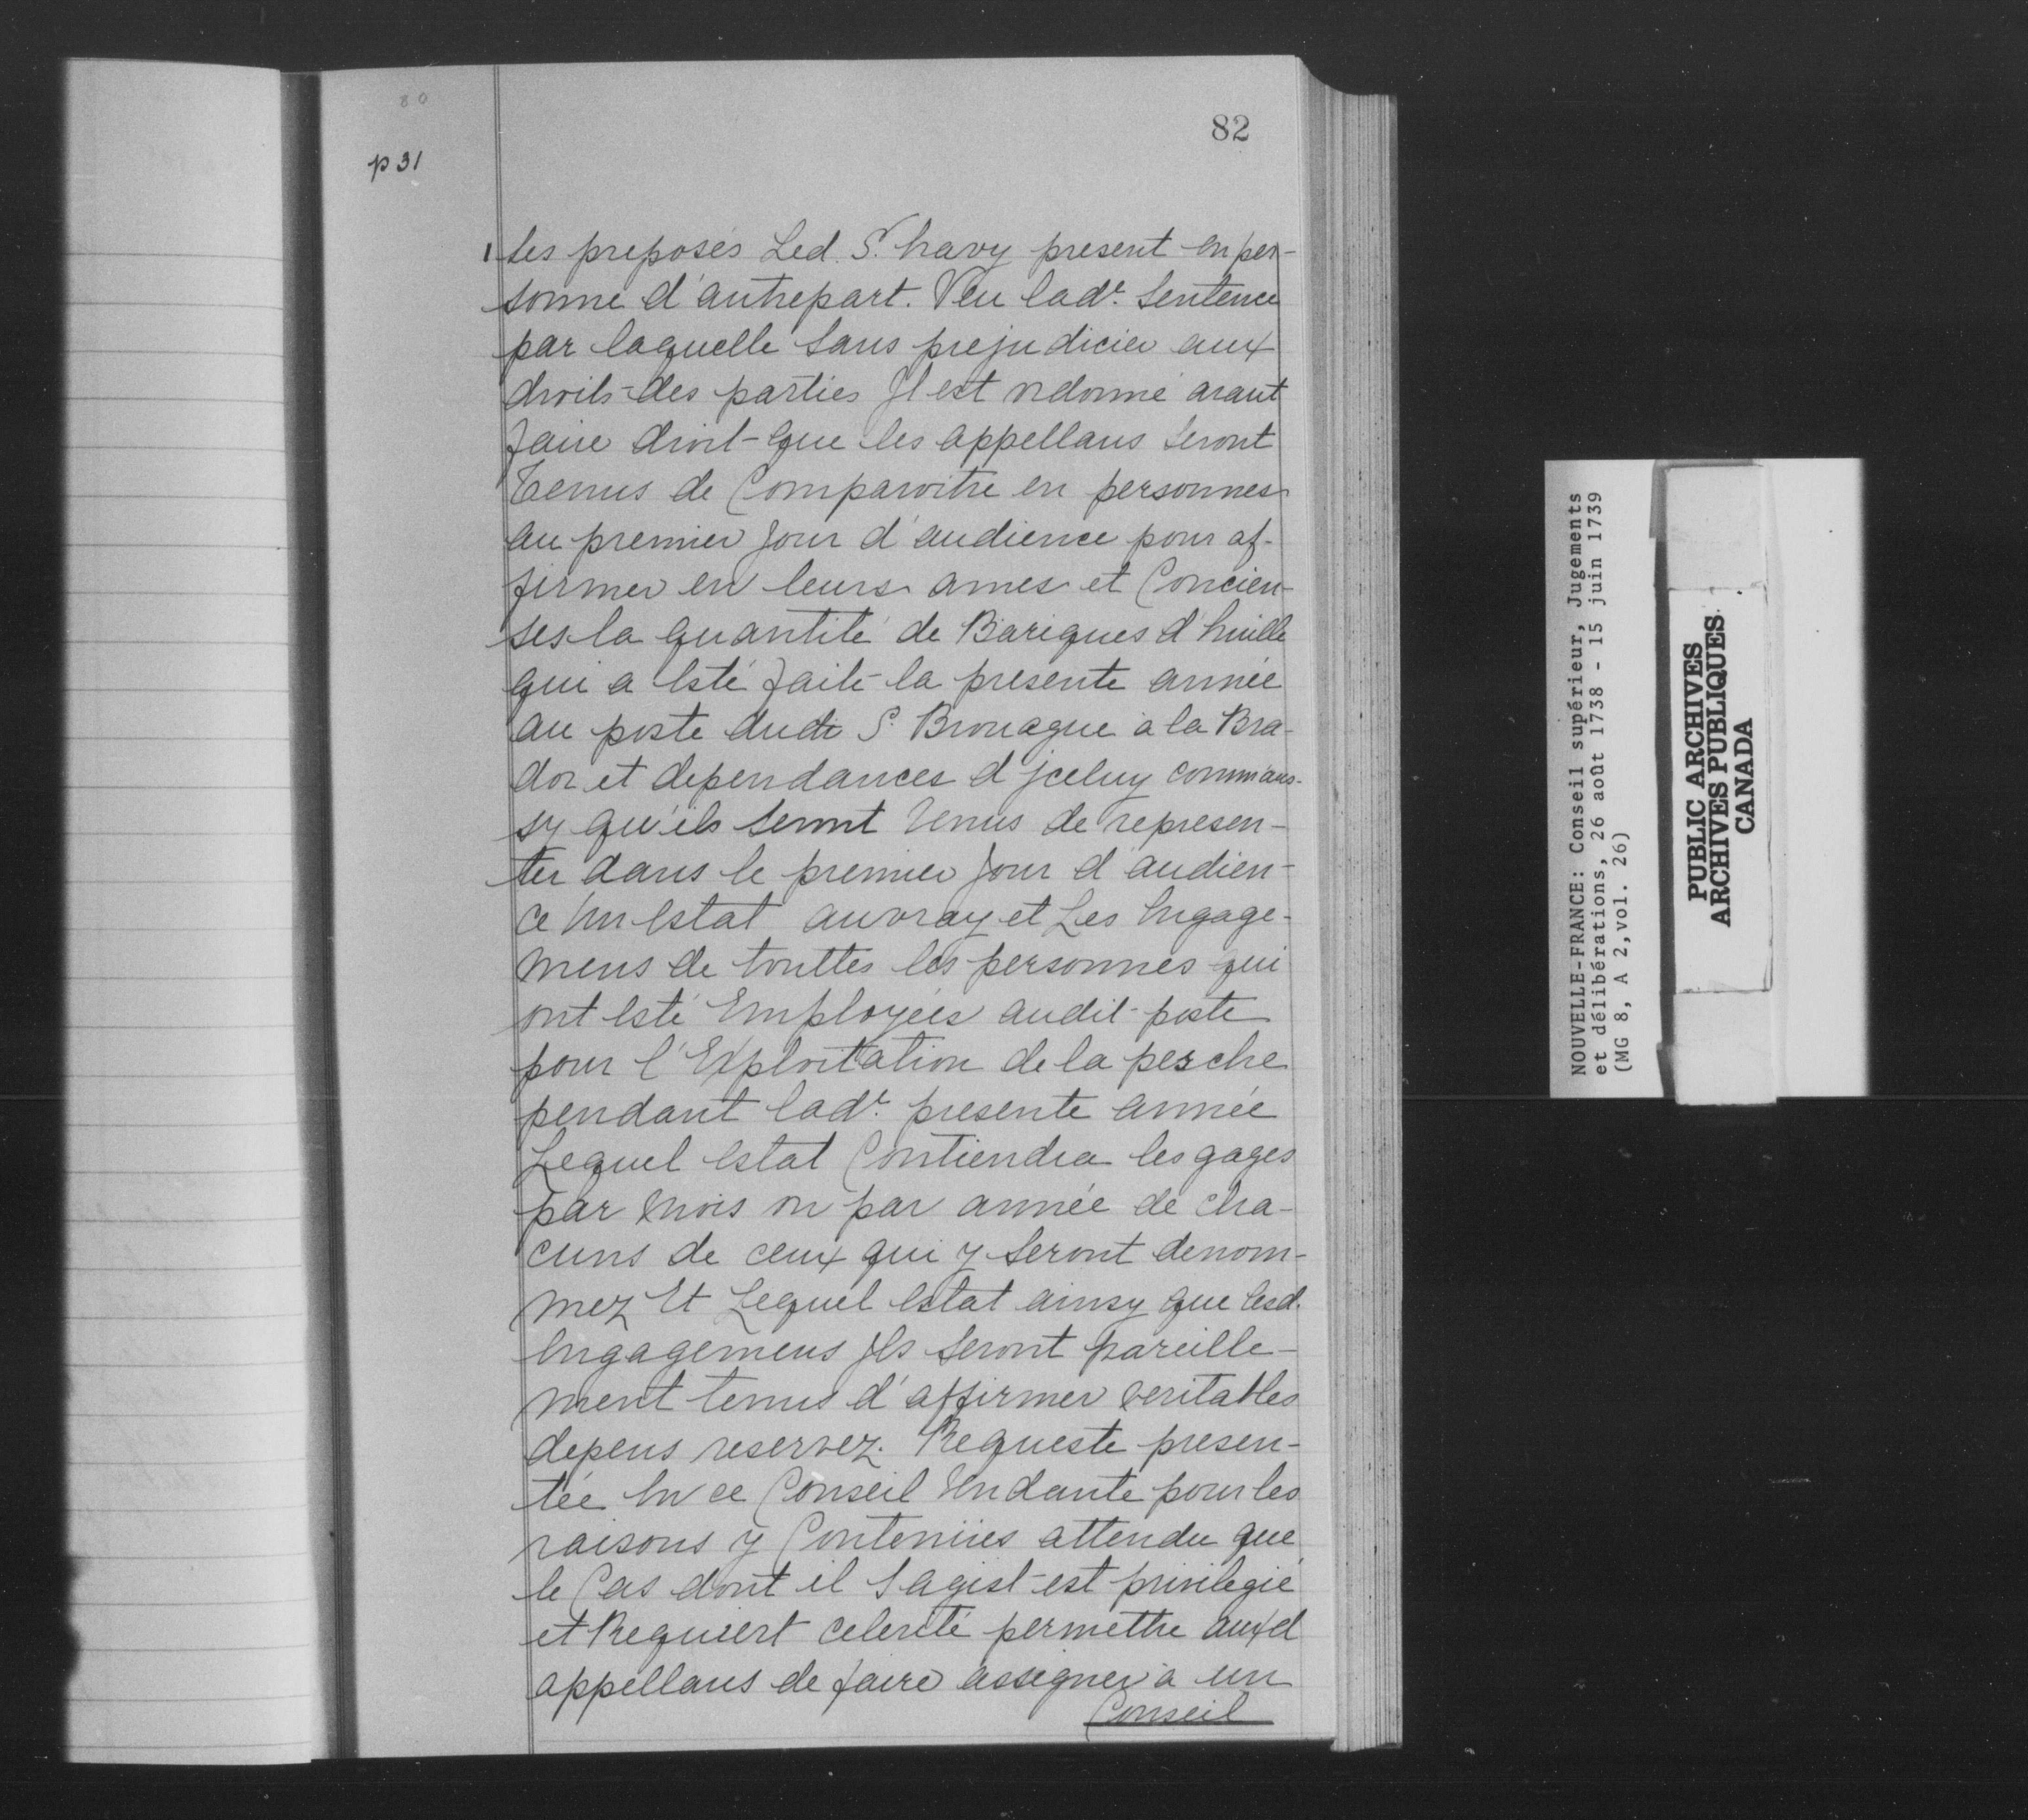 80
82
p 31
ses preposés Led. Sr. havy present en per-
sonne d'autrepart. Veu lade. Sentence
par laquelle sans prejudicier aux
droits des parties Jl est ordonné avant
faire droit que les appellans seront
Tenus de Comparoitre en personnes
au premier Jour d'audience pour af-
firmer en leurs ames et Concien-
ses la quantité de Bariques d'huille
qui a Esté faite la presente année
au poste dudt Sr. Brouague à la Bra-
dor et dependances d'jceluy comm'aus-
sy qu'ils seront Tenus de represen-
ter dans le premier Jour d'audien-
ce Un Estat auvray et Les Engage-
mens de touttes les personnes qui
ont Esté Employées audit poste
pour l'Exploitation de la pesche
pendant lade. presente année
Lequel Estat Contiendra les gages
par mois ou par année de cha-
cuns de ceux qui y seront denom-
mez Et Lequel Estat ainsy que lesd.
Engagemens Jls seront pareille-
ment tenus d'affirmer veritables
depens reservez. Requeste presen-
tée En ce Conseil tendante pour les
raisons y Contenües attendu que
le Cas dont il s'agist est privilegié
et Requiert celerité permettre auxd
appellans de faire assigner à un
Conseil
NOUVELLE-FRANCE: Conseil supérieur, Jugements
et délibérations, 26 août 1738 - 15 juin 1739
(MG 8, A 2,vol. 26)
PUBLIC ARCHIVES
ARCHIVES PUBLIQUES
CANADA